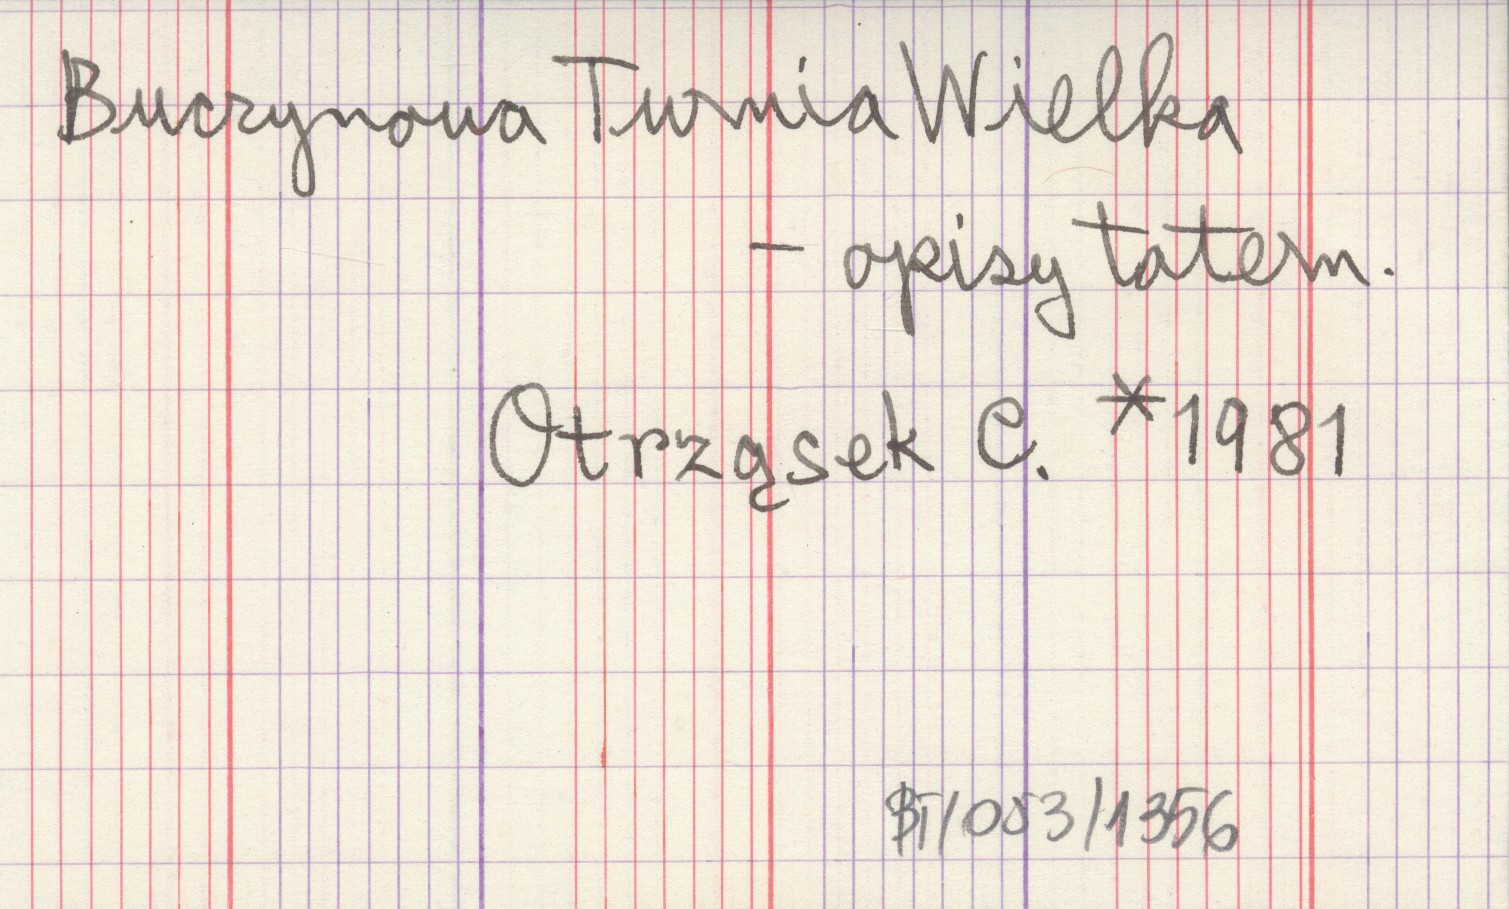 Buczynowa Turnia Wielka
- opisy tatern.
Otrząsek C. *1981
BT/053/1356